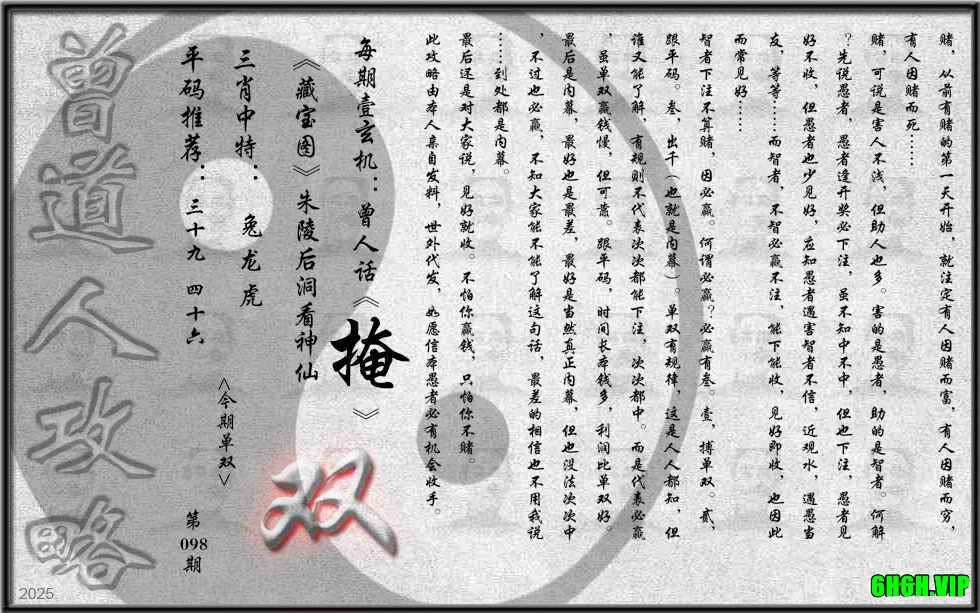 赌，从前有赌的第一天开始，就注定有人因赌而富，有人因赌而穷，
有人因赌而死……
赌，可说是害人不浅，但助人也多。害的是愚者，助的是智者。何解
？先说愚者，愚者逢开奖必下注，虽不知中不中，但也下注，愚者见
好不收，但愚者也少见好，应知愚者遇害智者不信，近观水，遇愚当
友，等等……而智者，不智必赢不注，能下能收，见好即收，也因此
而常见好……
智者下注不算赌，因必赢。何谓必赢？必赢有叁。壹，搏单双。贰，
跟平码。叁，出千（也就是内幕）。单双有规律，这是人人都知，但
谁又能了解，有规则不代表次次都能下注，次次都中。而是代表必赢
，虽单双赢钱慢，但可靠。跟平码，时间长本钱多，利润比单双好。
最后是内幕，最好也是最差，最好是当然真正内幕，但也没法次次中
，不过也必赢，不知大家能不能了解这句话，最差的相信也不用我说
……到处都是内幕。
最后还是对大家说，见好就收。不怕你赢钱，只怕你不赌。
此攻略由本人亲自发料，世外代发，如愿信本愚者必有机会收手。
每期壹玄机：曾人话《掩》
《藏宝图》朱陵后洞看神仙
三肖中特：兔龙虎
平码推荐：三十九 四十六
<今期单双>
双
第098期
曾道人攻略
2025
6H6H.VIP